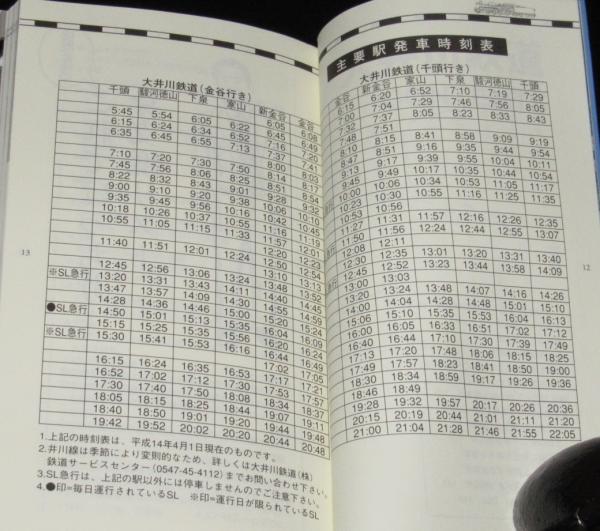 大井川鉄道(金谷行き)
千頭 駿河徳山 下泉 家山 新金谷 金谷
6:05 6:08
5:45 5:54 6:05 6:22 6:45 6:49
6:15 6:24 6:34 6:52 7:16 7:20
6:35 6:45 6:55 7:13 7:37 7:41
7:10 7:20 7:30 7:50
7:45 7:56 8:06 8:25
8:22 8:32 8:43 9:01
9:00 9:10 9:20
9:35 9:45 9:56 10:16
10:18 10:26 10:37 10:55
10:55 11:05 11:15 11:33
11:40 11:51 12:01 12:24
12:45 12:56 13:06 13:24
※SL急行 13:20 13:31 13:43
13:47 13:57 14:09
14:28 14:36 14:46
●SL急行 14:50 15:01 15:13
15:15 15:25 15:35
※SL急行 15:30 15:41 15:53 16:16
16:15 16:24 16:35 16:53 17:17 17:21
16:52 17:02 17:12 17:30 17:53 17:57
17:30 17:40 17:50 18:08 18:34 18:37
18:05 18:15 18:25 18:44 19:07 19:11
18:40 18:50 19:01 19:20 19:44 19:48
19:42 19:52 20:02 20:20 20:44 20:48
1.上記の時刻表は、平成14年4月1日現在のものです。
2.井川線は季節により変則的なため、詳しくは大井川鉄道(株)
鉄道サービスセンター(0547-45-4112)までお問い合わせ下さい。
3.SL急行は、上記の駅以外には停車しませんのでご注意下さい。
4.●印=毎日運行されているSL ※印=運行日が限られているSL
13
主要駅発車時刻表
大井川鉄道(千頭行き)
金谷 新金谷 家山 下泉 駿河徳山 千頭
6:15 6:20 6:52 7:10 7:19 7:29
7:00 7:04 7:29 7:46 7:56 8:05
7:32 7:37 8:05 8:23 8:33 8:43
7:48 7:51
8:10 8:15 8:41 8:58 9:09 9:19
8:47 8:51 9:16 9:35 9:44 9:54
9:13 9:17 9:39 9:55 10:04 10:11
9:45 9:49 10:17 10:35 10:44 10:54
10:00 10:06 10:34 10:53 11:05 11:17
10:23 10:30 10:55 11:16 11:25 11:35
10:53 10:56
11:27 11:31 11:57 12:16 12:26 12:35
11:50 11:56 12:24 12:44 12:55 13:07
12:08 12:11
12:30 12:35 13:01 13:20 13:31 13:40
12:45 12:52 13:23 13:44 13:58 14:09
13:00 13:03
13:20 13:24 13:48 14:07 14:16 14:26
14:00 14:04 14:28 14:48 15:01 15:10
15:06 15:10 15:35 15:53 16:04 16:13
16:00 16:05 16:33 16:51 17:02 17:12
16:40 16:44 17:10 17:30 17:39 17:49
17:13 17:20 17:48 18:06 18:15 18:25
17:49 17:57 18:23 18:41 18:50 19:00
18:30 18:34 18:59 19:17 19:26 19:36
18:46 18:49
19:28 19:32 19:57 20:17 20:26 20:36
20:15 20:19 20:44 21:01 21:11 21:20
21:00 21:04 21:28 21:46 21:55 22:05
12